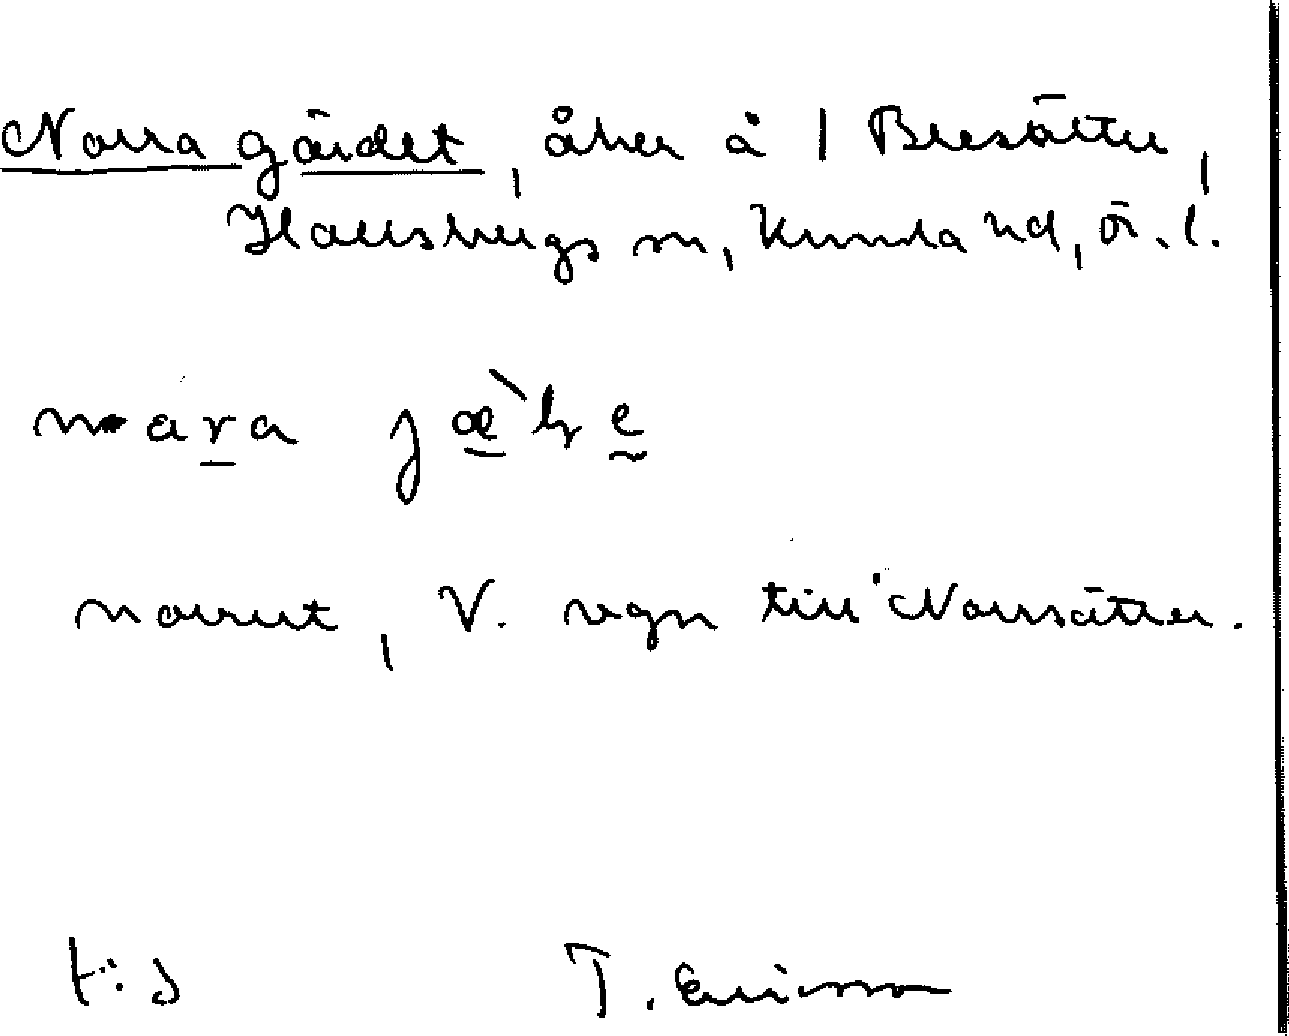 Norra gärdet, åker å 1 Bresätter,
Hallsbergs sn, Kumla hd, Ö. l.
nara
norrut, V. vgn till Norrsätter.
T. Ericsson